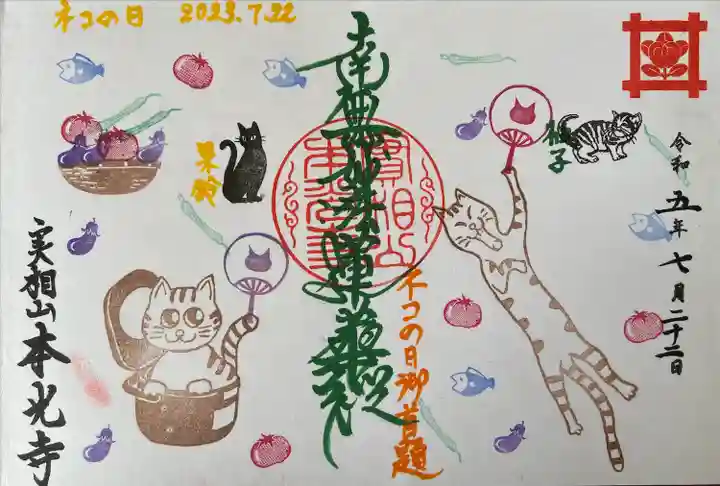 ネコの日 2023.7.22
令和五年七月二十二日
柚子
果鈴
南無妙法蓮華経
ネコの日御首題
実相山本光寺